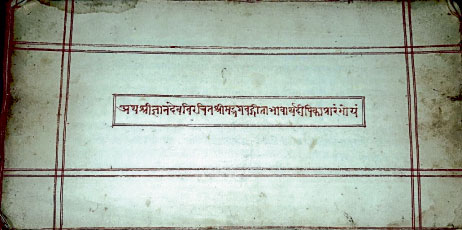 अथश्रीज्ञानदेवविरचितश्रीमद्भगवद्गीताभावार्थदीपिकाप्रारंभोयं